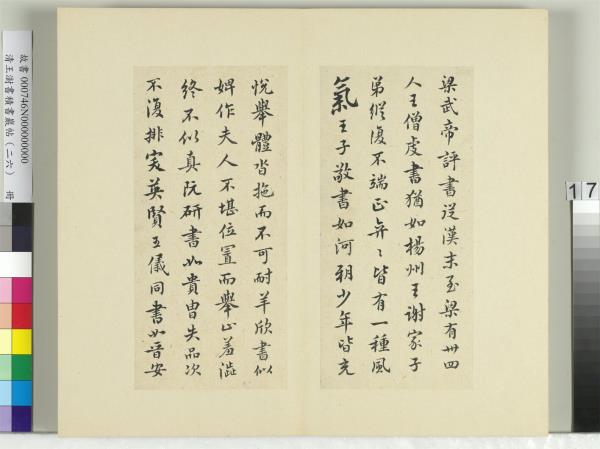 梁武帝評書從漢末至梁有卅四
人王僧虔書猶如楊州王謝家子
弟縱復不端正奕〻皆有一種風
氣王子敬書如河朔少年皆充
悅舉體沓拖而不可耐羊欣書似
婢作夫人不堪位置而舉止羞澁
終不似真阮研書如貴胄失品次
不復排突英賢王儀同書如晉安
故書000746N000000000
清王澍書積書巖帖(二六) 冊
17